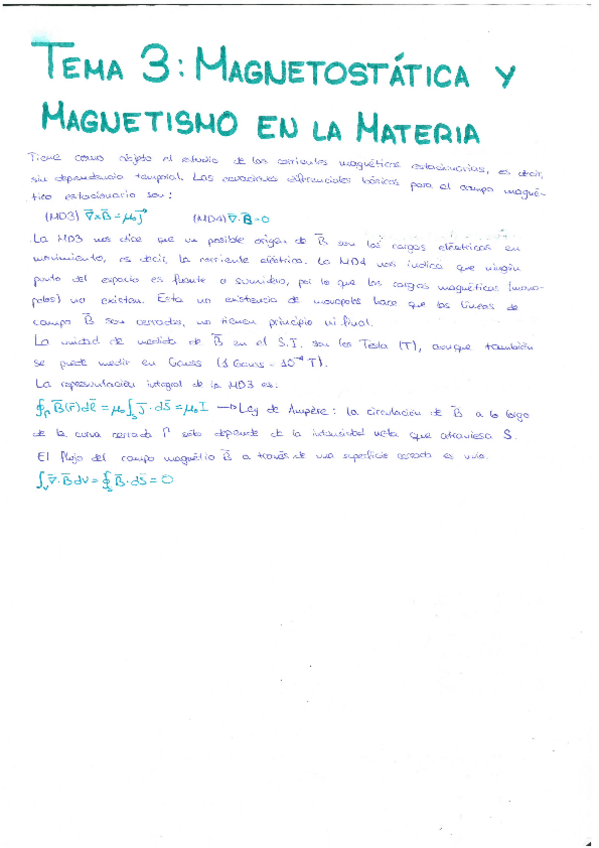 TEMA 3: MAGNETOSTÁTICA Y
MAGNETISMO EN LA MATERIA
Tiene como objeto el estudio de las corrientes magnéticas estacionarias, es decir,
sin dependencia temporal. Las ecuaciones diferenciales básicas para el campo magné-
tico estacionario son:
(MD3) ∇̄×B̄=μ₀J̄ (MD4) ∇̄·B̄=0
La MD3 nos dice que un posible origen de B̄ son las cargas eléctricas en
movimiento, es decir, la corriente eléctrica. La MD4 nos indica que ningún
punto del espacio es fuente o sumidero, por lo que las cargas magnéticas (mono-
polos) no existen. Esta no existencia de monopolos hace que las líneas de
campo B̄ sean cerradas, no tienen principio ni final.
La unidad de medida de B̄ en el S.I. son los Tesla (T), aunque también
se puede medir en Gauss (1 Gauss = 10⁻⁴ T).
La representación integral de la MD3 es:
∮_Γ B̄(r̄)dl̄ = μ₀∫_S J̄·dS̄ = μ₀I → Ley de Ampère: la circulación de B̄ a lo largo
de la curva cerrada Γ sólo depende de la intensidad neta que atraviesa S.
El flujo del campo magnético B̄ a través de una superficie cerrada es nulo.
∫_V ∇̄·B̄dV = ∮_S B̄·dS̄ = 0